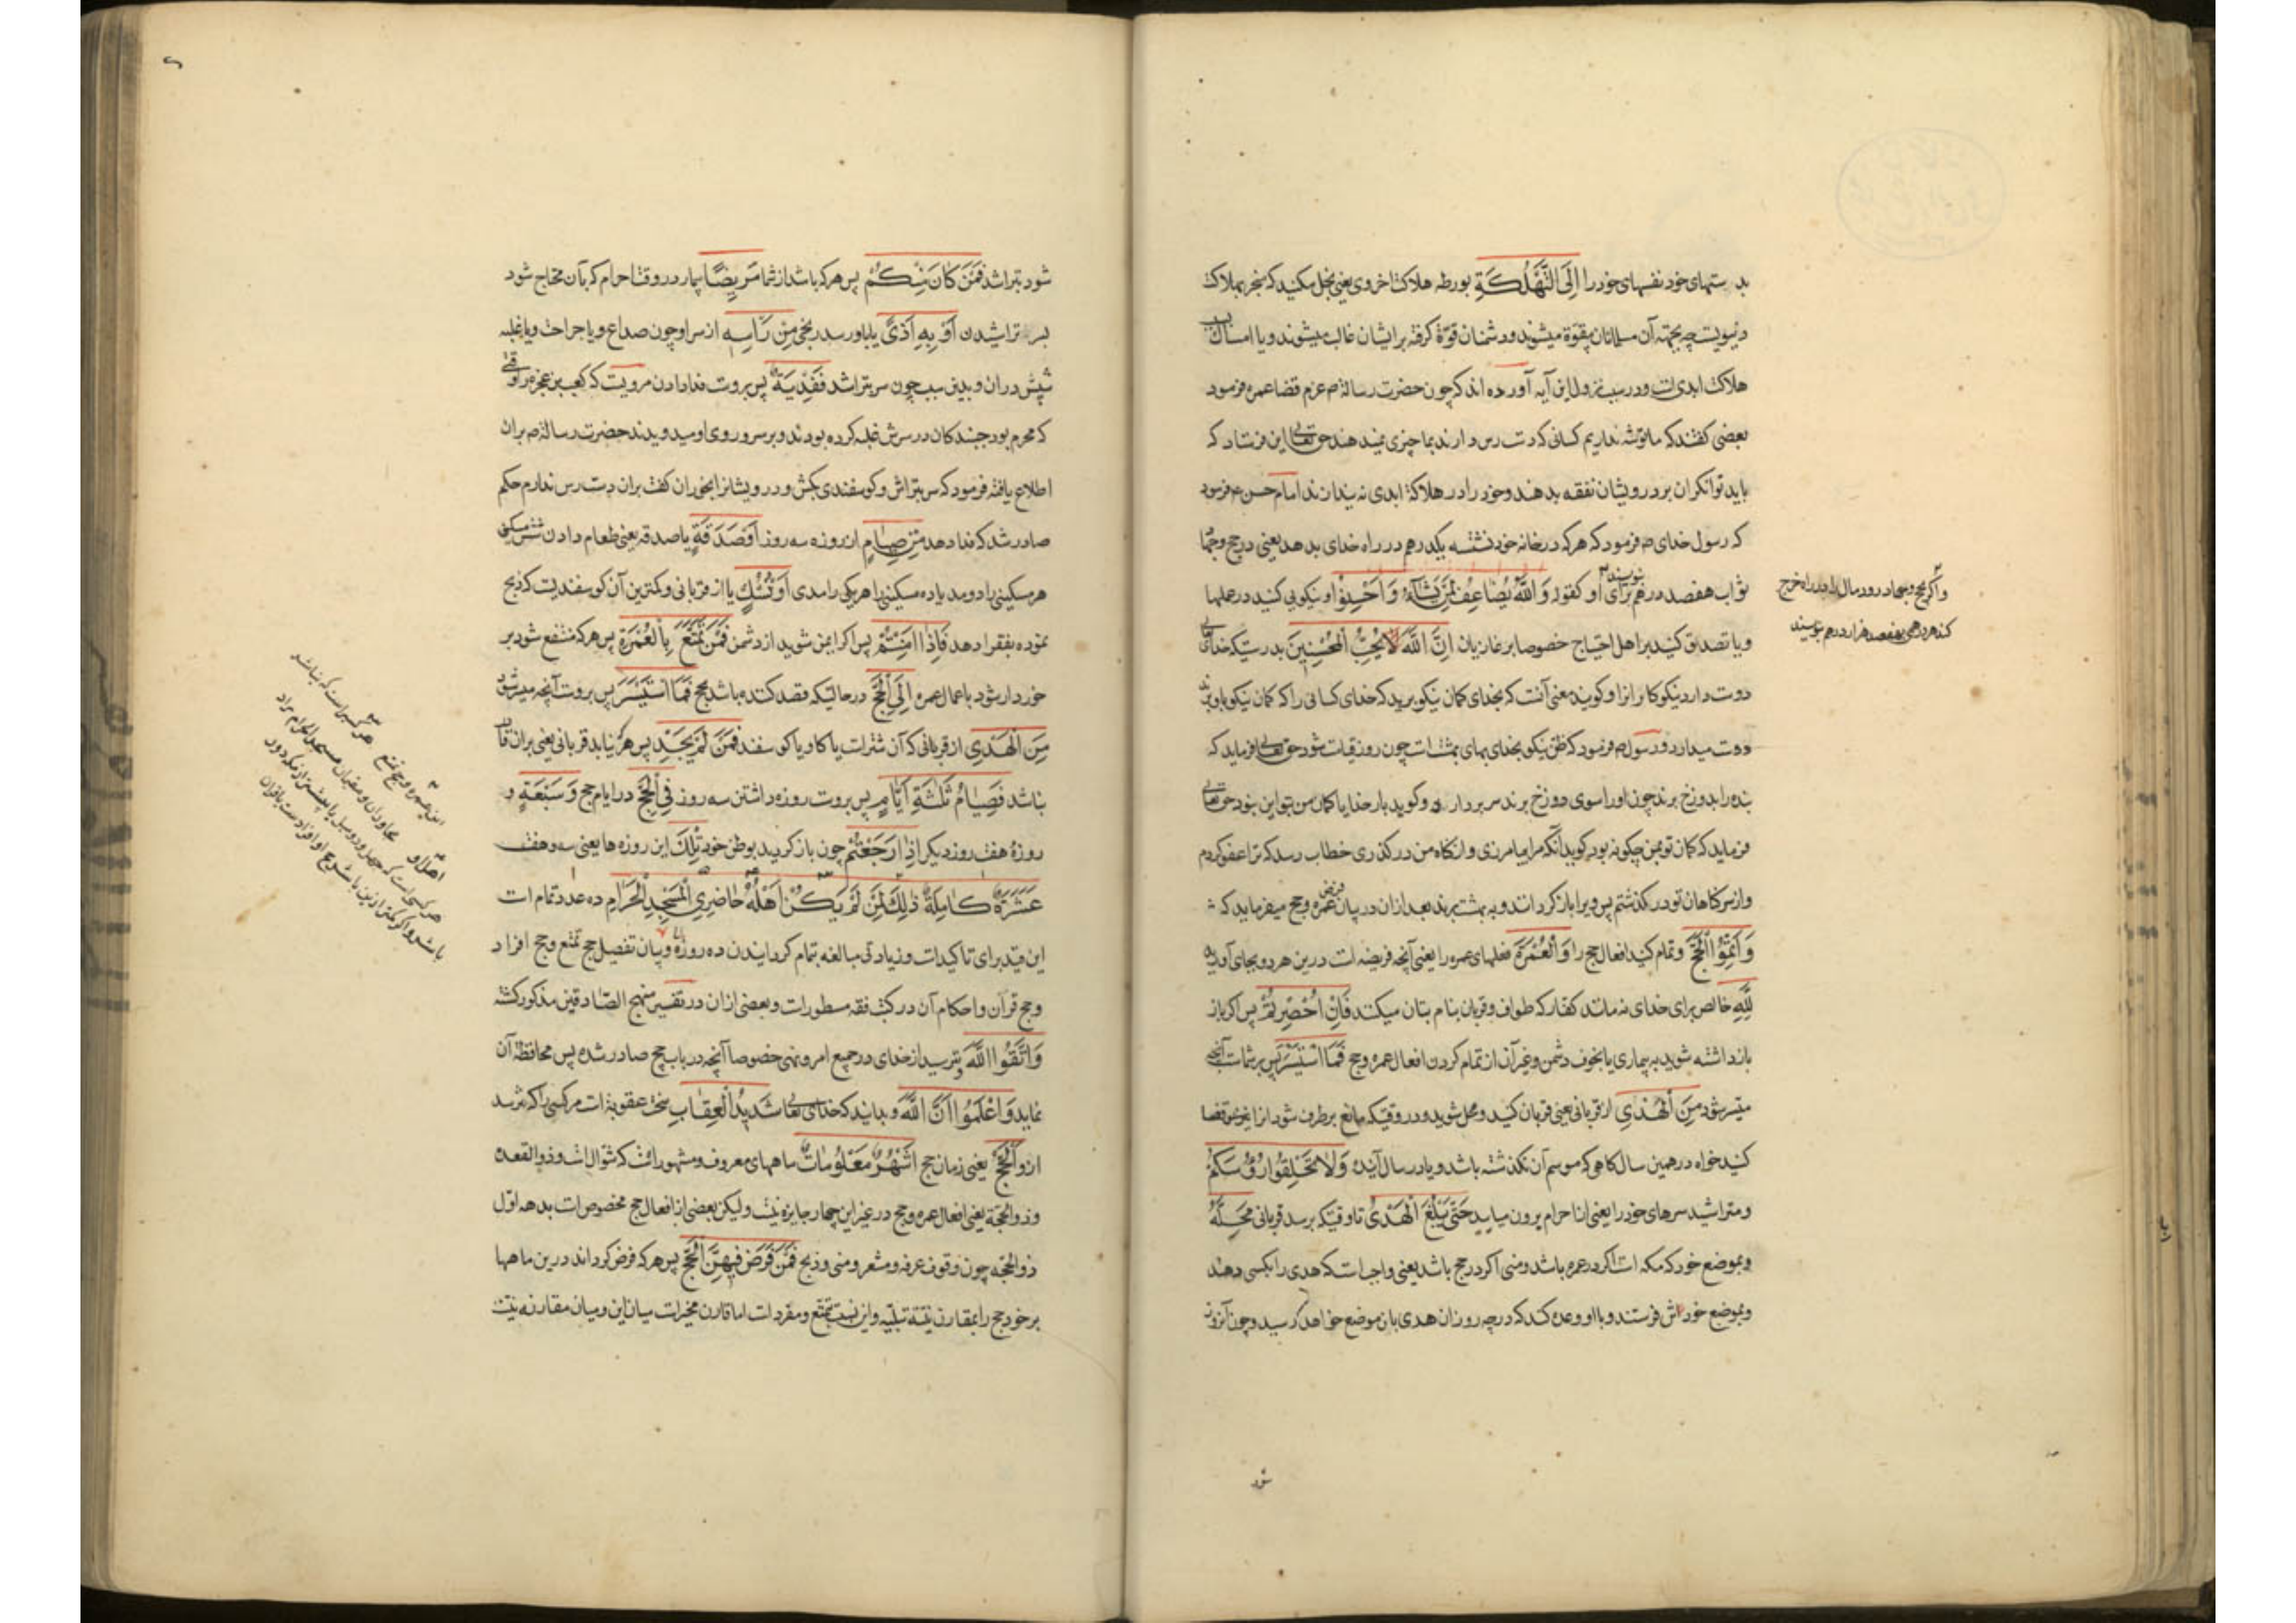 بدستهای خود نفسهای خود را إِلَى التَّهْلُكَةِ بورطه هلاکت اخروی یعنی بخل مکنید که منجر بهلاکت
دنیویست چه بجهة آن مسلمانان بیقوة میشوند و دشمنان قوّة گرفته بر ایشان غالب میشوند و یا امساک
هلاکت ابدیست و در سبب نزول این آیه آورده اند که چون حضرت رسالة ص عزم قضا عمره فرمود
بعضی گفتند که ما توشه نداریم کسانی که دست رس دارند بما چیزی نمیدهند حق تعالی این فرستاد که
باید توانگران بر درویشان نفقه بدهند و خود را در هلاکة ابدی نه اندازند امام حسن ع فرمود
که رسول خدای ص فرمود که هر که در خانه خود نشسته یکدرهم در راه خدای بدهد یعنی در حج و جهاد
ثواب هفصد درهم برای او نویسند کقوله وَاللَّهُ يُضَاعِفُ لِمَنْ يَشَاءُ وَأَحْسِنُوا و نیکویی کنید در عملها
و یا تصدق کنید بر اهل احتیاج خصوصا بر غازیان إِنَّ اللَّهَ يُحِبُّ الْمُحْسِنِينَ بدرستیکه خدای تعالی
دوست دارد نیکوکارانرا و گویند معنی آنست که بخدای گمان نیکو برید که خدای کسانی را که گمان نیکو باو برند
دوست میدارد و رسول ص فرمود که ظن نیکو بخدای بهای بهشت است چون روز قیامت شود حق تعالی فرماید که
بنده را بدوزخ برند چون او را سوی دوزخ برند سر بردارد و گوید بار خدایا گمان من بتو این نبود حق تعالی
فرماید که گمان تو بمن چگونه بود گوید آنکه مرا بیامرزی و از گناه من درگذری خطاب رسد که ترا عفو کردم
و از سر گناهان تو درگذشتم پس ویرا باز گردانند و به بهشت برند بعد از آن در بیان فرض عمره و حج میفرماید که
وَأَتِمُّوا الْحَجَّ و تمام کنید افعال حج را وَالْعُمْرَةَ فعلهای عمره را یعنی آنچه فریضه است درین هر دو بجای آورید
لِلَّهِ خالص برای خدای نه مانند کفار که طواف و قربان بنام بتان میکنند فَإِنْ أُحْصِرْتُمْ پس اگر باز
بازداشته شوید به بیماری یا بخوف دشمن و غیر آن از تمام کردن افعال عمره و حج فَمَا اسْتَيْسَرَ پس بر شماست آنچه
میسر شود مِنَ الْهَدْيِ از قربانی یعنی قربان کنید و محل شوید و در وقتیکه مانع بر طرف شود قضا
کنید خواه در همین سال گاهی که موسم آن نگذشته باشد و یا در سال آینده وَلَا تَحْلِقُوا رُءُوسَكُمْ
و متراشید سرهای خود را یعنی از احرام بیرون میایید حَتَّى يَبْلُغَ الْهَدْيُ تا وقتیکه برسد قربانی مَحِلَّهُ
و بموضع خود که مکه است اگر در عمره باشد و منی اگر در حج باشد یعنی واجب است که هدی را بکسی دهند
و بموضع خودش فرستند و با او وعده کند که در چه روز آن هدی بان موضع خواهد رسید و چون آنروز
و اگر بحج و بجهاد رود مال را در راه خرج
کند هر درهمی بهفصد هزار درهم نویسند
شود
شود بتراشد فَمَنْ كَانَ مِنْكُمْ پس هر که باشد از شما مَرِيضًا بیمار در وقت احرام که بآن محتاج شود
بسر تراشیدن أَوْ بِهِ أَذًى یا باو رسد رنجی مِنْ رَأْسِهِ از سر او چون صداع و یا جراحت و یا غلبه
شپش در آن و بدین سبب چون سر بتراشد فَفِدْيَةٌ پس بروست فدا دادن مرویست که کعب بن عجره را وقتی
که محرم بود جنبندگان در سرش غلبه کرده بودند و بر سر و روی او میدویدند حضرت رسالة ص بر آن
اطلاع یافته فرمود که سر بتراش و گوسفندی بکش و درویشانرا بخوران گفت بر آن دست رس ندارم حکم
صادر شد که فدا دهد مِنْ صِيَامٍ از روزه سه روز أَوْ صَدَقَةٍ یا صدقه یعنی طعام دادن شش مسکین
هر مسکینی را دو مد یا ده مسکین را هر یکی را مدی أَوْ نُسُكٍ یا از قربانی و کمترین آن گوسفندیست که ذبح
نموده بفقرا دهد فَإِذَا أَمِنْتُمْ پس اگر ایمن شوید از دشمن فَمَنْ تَمَتَّعَ بِالْعُمْرَةِ پس هر که منتفع شود بر
خوردار شود باعمال عمره إِلَى الْحَجِّ در حالتیکه قصد کننده باشد بحج فَمَا اسْتَيْسَرَ پس بروست آنچه میسر شود
مِنَ الْهَدْيِ از قربانی که آن شتر است یا گاو یا گوسفند فَمَنْ لَمْ يَجِدْ پس هر که نیابد قربانی یعنی بر آن قادر
نباشد فَصِيَامُ ثَلَاثَةِ أَيَّامٍ پس بروست روزه داشتن سه روز فِي الْحَجِّ در ایام حج وَسَبْعَةٍ و
روزهٔ هفت روز دیگر إِذَا رَجَعْتُمْ چون باز گردید بوطن خود تِلْكَ این روزه ها یعنی سه و هفت
عَشَرَةٌ كَامِلَةٌ ذَلِكَ لِمَنْ لَمْ يَكُنْ أَهْلُهُ حَاضِرِي الْمَسْجِدِ الْحَرَامِ ده عدد تمام است
این قید برای تاکید است و زیادتی مبالغه بتمام گردانیدن ده روزه و بیان تفصیل حج تمتع و حج افراد
و حج قرآن و احکام آن در کتب فقه مسطور است و بعضی از آن در تفسیر منهج الصادقین مذکور گشته
وَاتَّقُوا اللَّهَ و بترسید از خدای در جمیع امر و نهی خصوصا آنچه در باب حج صادر شده پس محافظة آن
نمایید وَاعْلَمُوا أَنَّ اللَّهَ و بدانید که خدای تعالی شَدِيدُ الْعِقَابِ سخت عقوبة است مر کسی را که نترسد
ازو الْحَجُّ یعنی زمان حج أَشْهُرٌ مَعْلُومَاتٌ ماههای معروف و مشهور است که شوال است و ذوالقعده
و ذوالحجة یعنی افعال عمره و حج در غیر این چهار جایز نیست و لیکن بعضی از افعال حج مخصوص است بدهه اول
ذوالحجه چون وقوف عرفه و مشعر و منی و ذبح فَمَنْ فَرَضَ فِيهِنَّ الْحَجَّ پس هر که فرض گرداند درین ماهها
بر خود حج را بمقارن نیتة تلبیه و این نسبت بتمتع و مفرد است اما قارن مخیر است میان این و میان مقارنه نیت